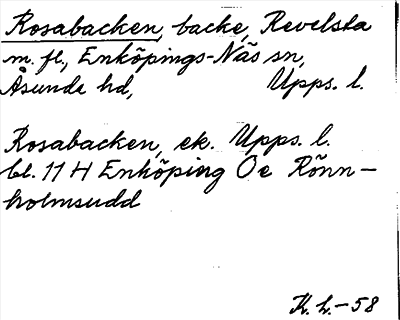 Rosabacken, backe, Revelsta
m. fl., Enköpings-Näs sn,
Åsunda hd, Upps. l.
Rosabacken, ek. Upps. l.
bl. 11 H Enköping Oe Rönn-
holmsudd
K. h. -58